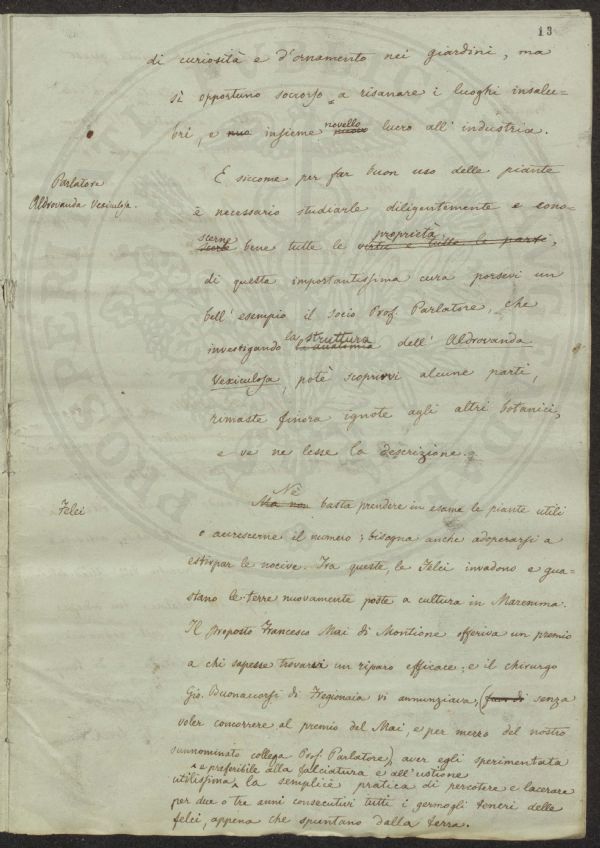 13
di curiosità e d'ornamento nei giardini, ma
sì opportuno soccorso a risanare i luoghi insalu-
bri, e insieme novello lucro all'industria.
Parlatore
Aldrovanda Vexiculosa.
E siccome per far buon uso delle piante
è necessario studiarle diligentemente e cono-
scerne bene tutte le proprietà virtù e tutte le parti,
di questa importantissima cura porsevi un
bell'esempio il socio Prof. Parlatore, che
investigando la struttura la anatomia dell'Aldrovanda
Vexiculosa, potè scoprirvi alcune parti,
rimaste finora ignote agli altri botanici,
e ve ne lesse la descrizione.
Felci
Nè
Ma non basta prendere in esame le piante utili
o accrescerne il numero; bisogna anche adoperarsi a
estirpar le nocive. Tra queste, le Felci invadono e gua-
stano le terre nuovamente poste a cultura in Maremma.
Il Proposto Francesco Mai di Montione offeriva un premio
a chi sapesse trovarvi un riparo efficace: e il chirurgo
Gio. Buonaccorsi di Fregionaia vi annunziava, (senza
voler concorrere al premio del Mai, e per mezzo del nostro
sunnominato collega Prof. Parlatore), aver egli sperimentata
e preferibile alla falciatura e all'ustione
utilissima, la semplice pratica di percotere e lacerare
per due o tre anni consecutivi tutti i germogli teneri delle
felci, appena che spuntano dalla terra.